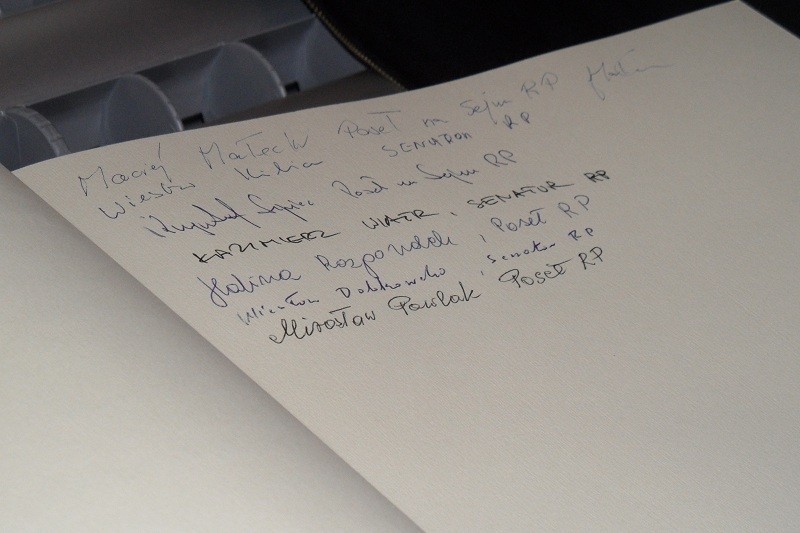 Maciej Małecki Poseł na Sejm RP
Wiesław Kilian SENATOR RP
Krzysztof Poseł na Sejm RP
KAZIMIERZ WIATR, SENATOR RP
Halina Rozpondek, Poseł RP
Wiesław Dobkowski, Senator RP
Mirosław Pawlak Poseł RP